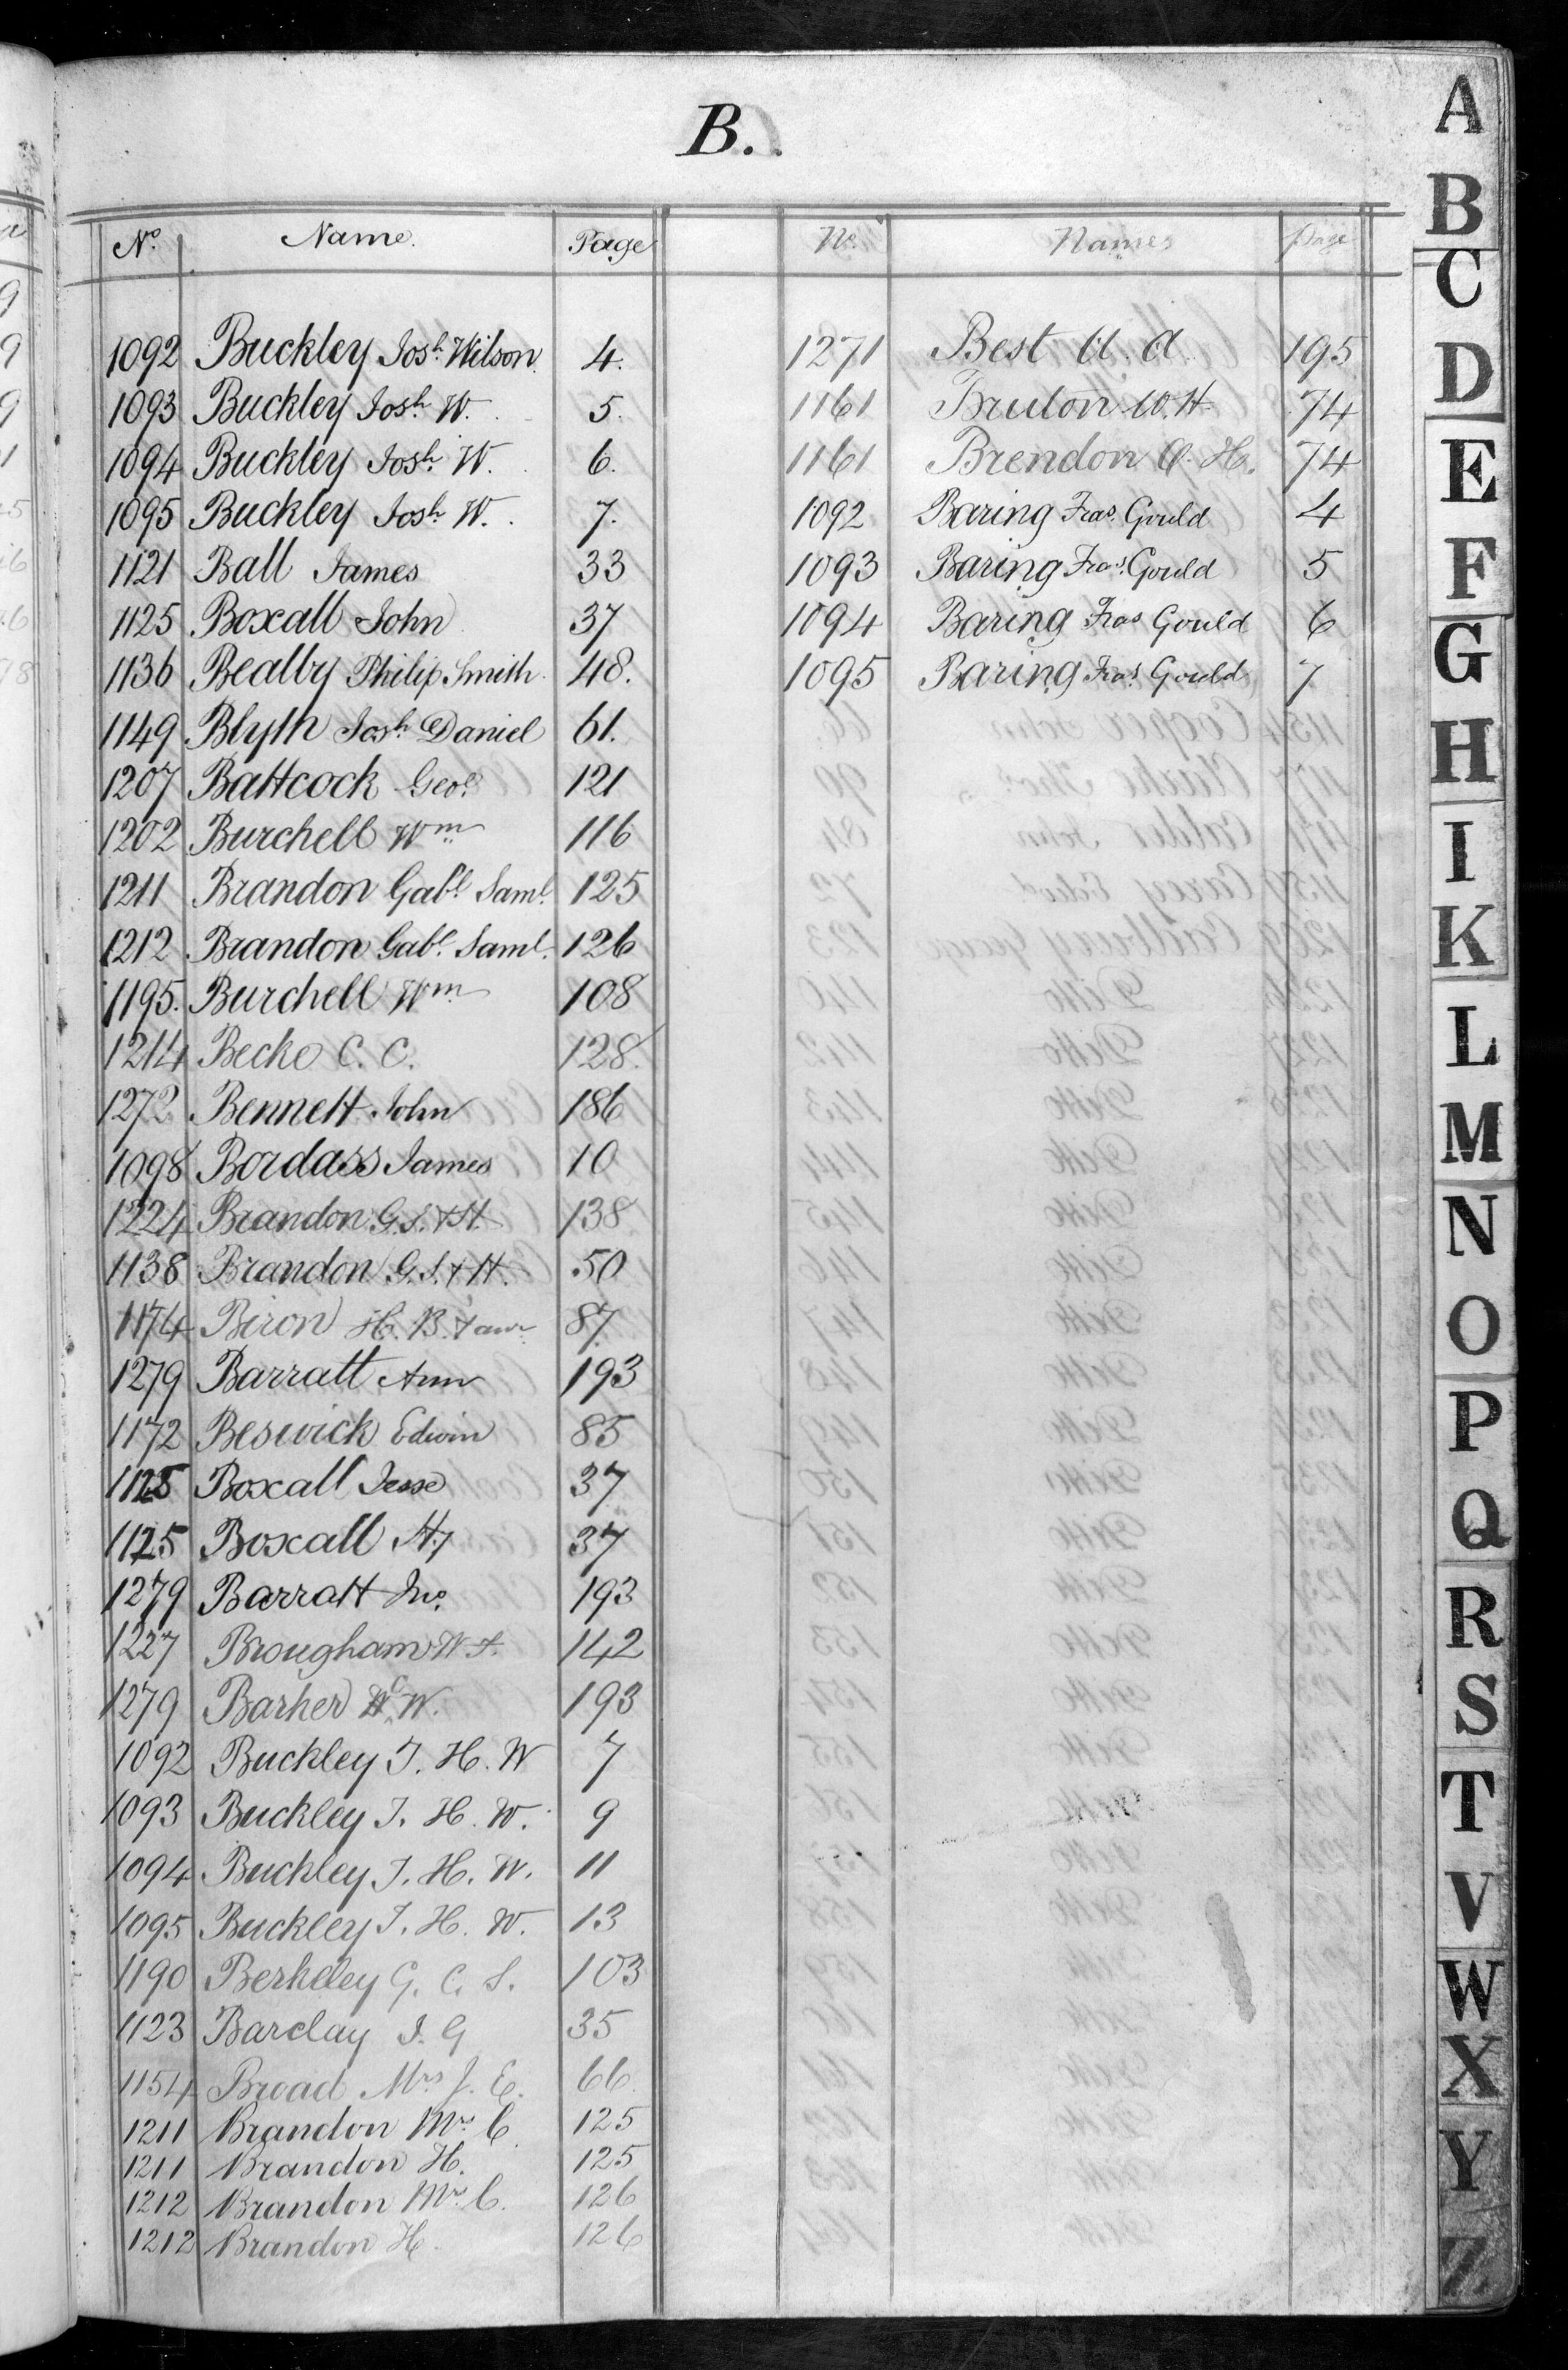 B.
No. Name. Page
1092 Buckley Josh. Wilson. 4.
1093 Buckley Josh. W. 5.
1094 Buckley Josh. W. 6.
1095 Buckley Josh. W. 7.
1121 Ball James 33
1125 Boxall John 37
1136 Bealby Philip Smith. 48.
1149 Blyth Josh. Daniel 61.
1207 Battcock Geoe. 121
1202 Burchell Wm. 116
1211 Brandon Gabl. Saml. 125
1212 Brandon Gabl. Saml. 126
1195. Burchell Wm. 108
1214 Becke C. C. 128.
1272 Bennett John 186
1098 Bordass James 10
1224 Brandon G. S. & H. 138
1138 Brandon G. S. & H. 50
1174 Biron H. B. & anr. 87
1279 Barratt Ann 193
1172 Beswick Edwin 85
1125 Boxall Jesse 37
1125 Boxall Hy 37
1279 Barratt Jno. 193
1227 Brougham W. F. 142
1279 Barker W. 193
1092 Buckley J. H. W 7
1093 Buckley J. H. W. 9
1094 Buckley J. H. W. 11
1095 Buckley J. H. W. 13
1190 Berkeley G. C. S. 103
1123 Barclay J. G 35
1154 Broad Mrs J. E. 66
1211 Brandon Mrs C. 125
1211 Brandon H. 125
1212 Brandon Mrs C. 126
1212 Brandon H. 126
No. Names Page
1271 Best A. A. 195
1161 Bruton W. H. 74
1161 Brendon H. 74
1092 Baring Fras. Gould 4
1093 Baring Fras. Gould 5
1094 Baring Fras Gould 6
1095 Baring Fras. Gould 7
A
B
C
D
E
F
G
H
I
K
L
M
N
O
P
Q
R
S
T
V
W
X
Y
Z